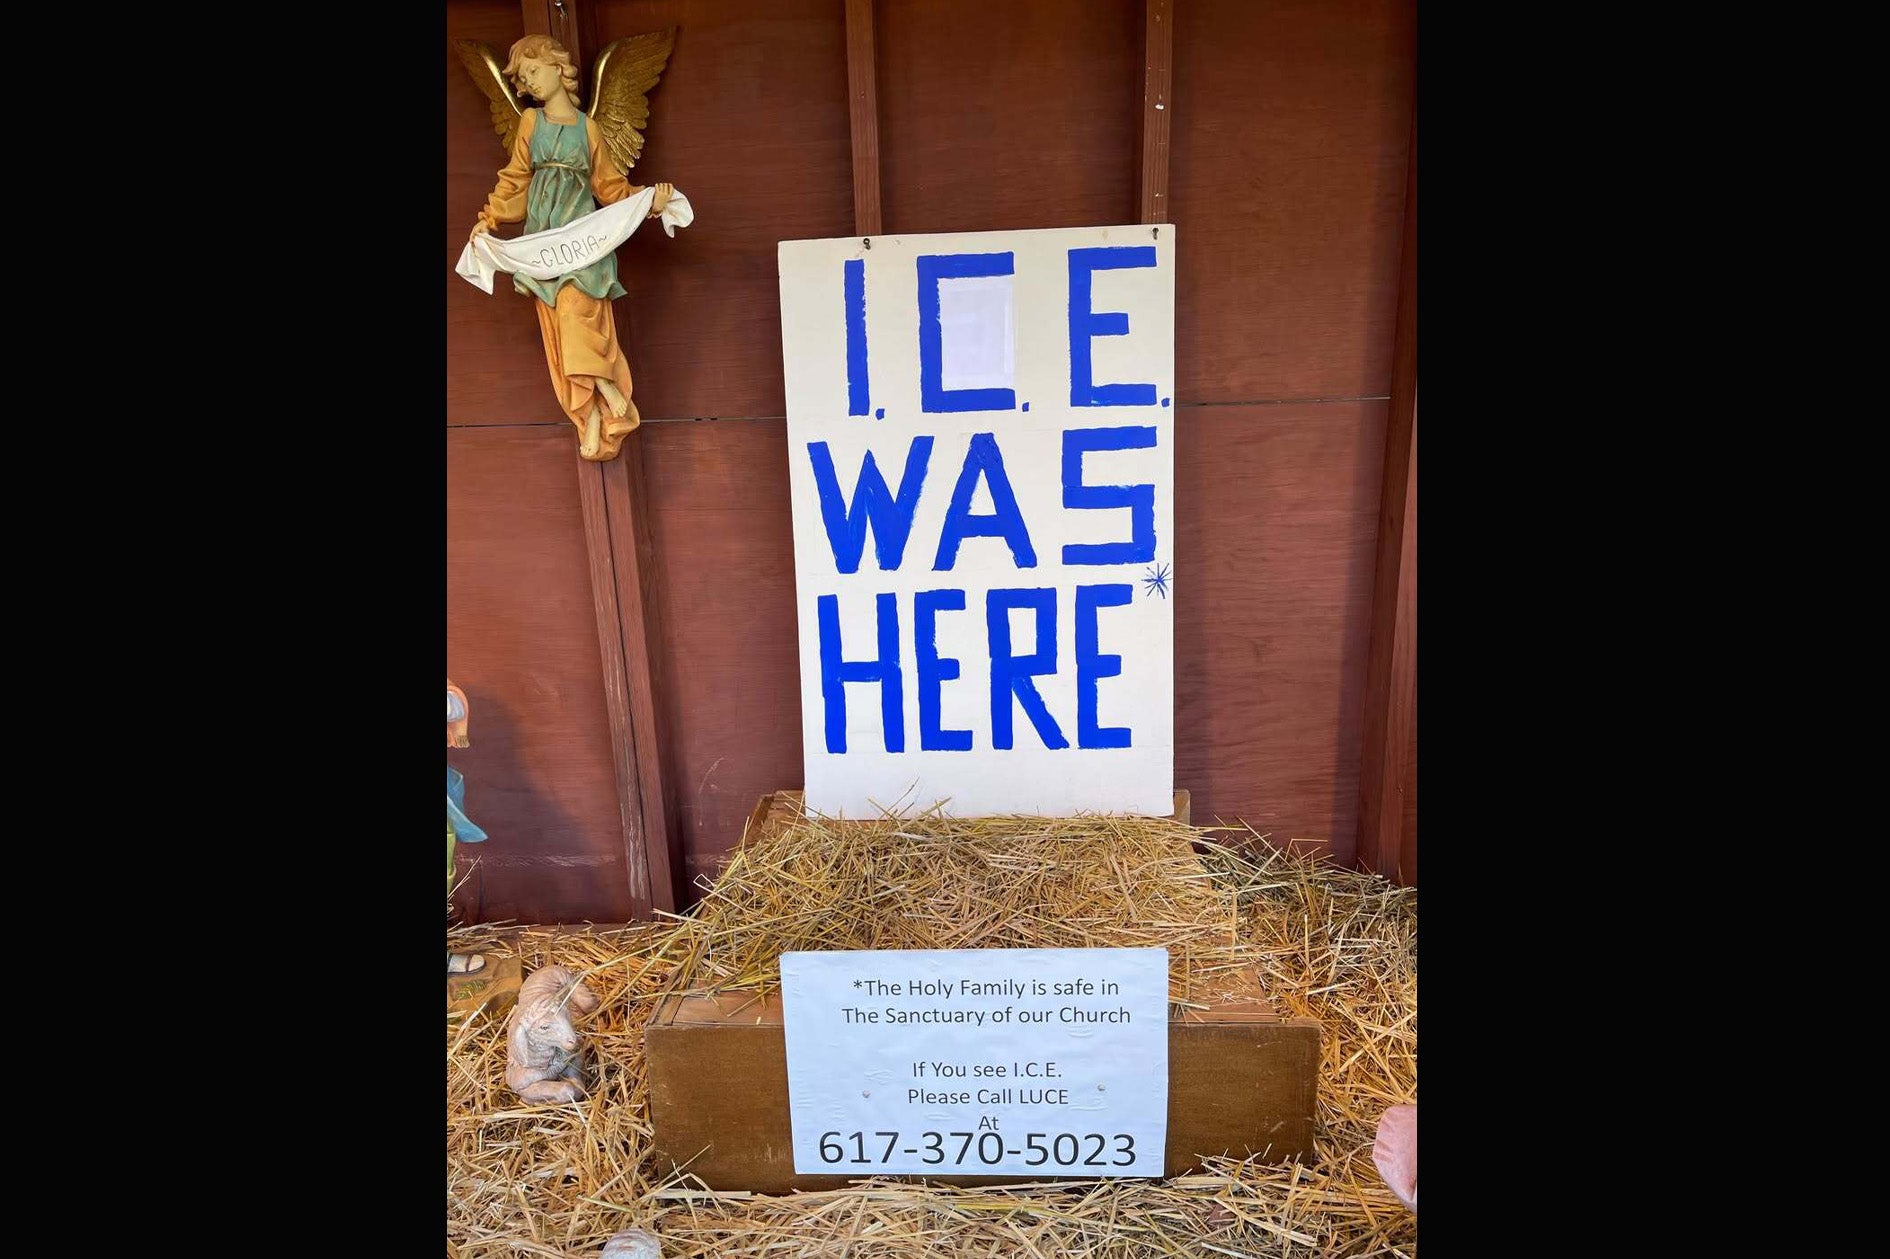 ~GLORIA~
I.C.E.
WAS
HERE*
*The Holy Family is safe in
The Sanctuary of our Church
If You see I.C.E.
Please Call LUCE
At
617-370-5023